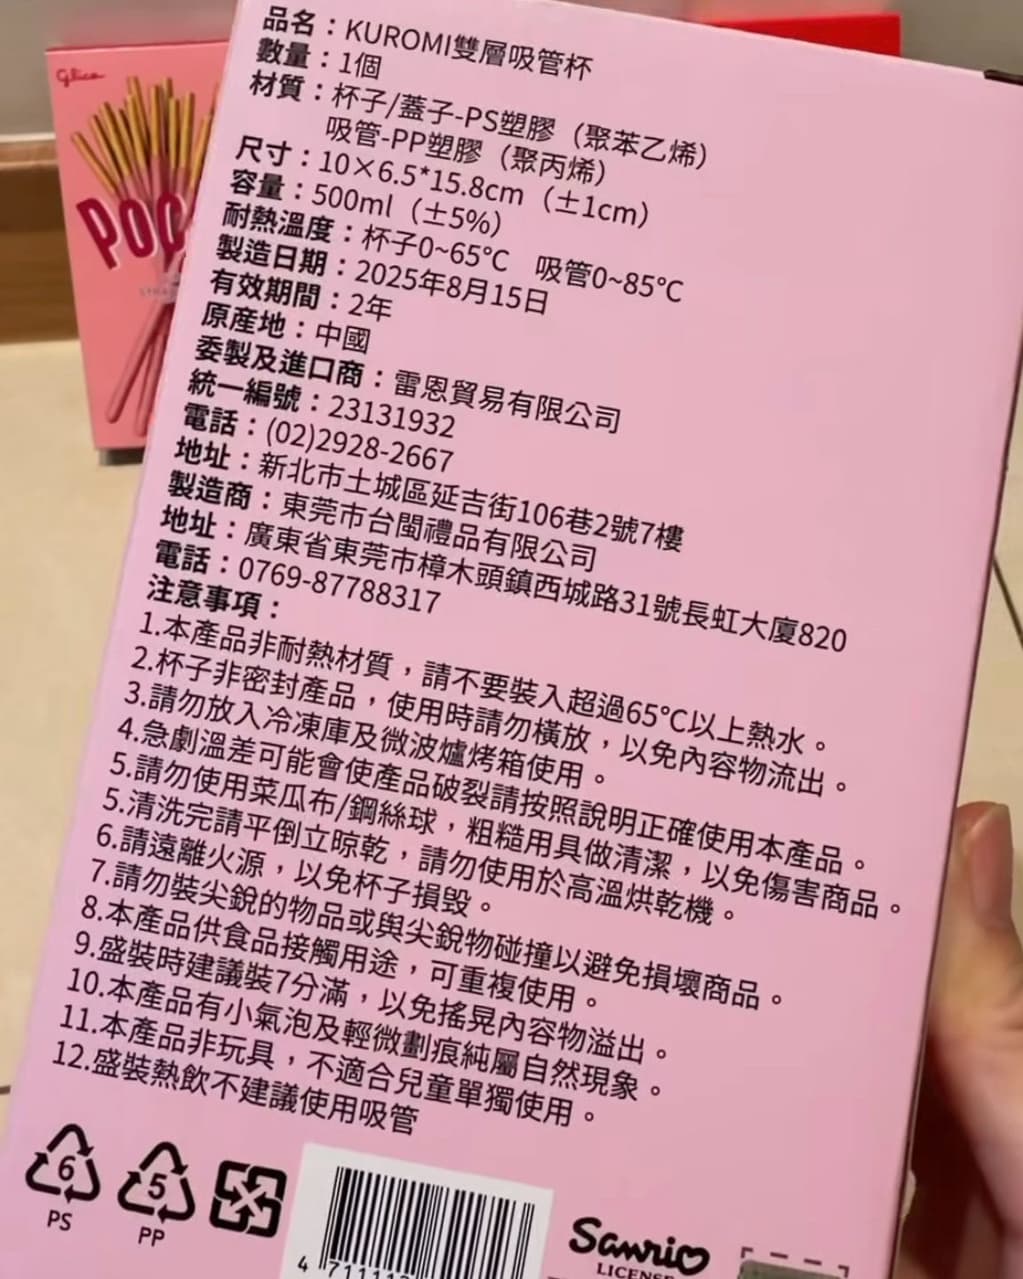 Glico
品名：KUROMI雙層吸管杯
數量：1個
材質：杯子/蓋子-PS塑膠（聚苯乙烯）
吸管-PP塑膠（聚丙烯）
尺寸：10×6.5*15.8cm（±1cm）
容量：500ml（±5%）
耐熱溫度：杯子0~65°C 吸管0~85°C
製造日期：2025年8月15日
有效期間：2年
原產地：中國
委製及進口商：雷恩貿易有限公司
統一編號：23131932
電話：(02)2928-2667
地址：新北市土城區延吉街106巷2號7樓
製造商：東莞市台閩禮品有限公司
地址：廣東省東莞市樟木頭鎮西城路31號長虹大廈820
電話：0769-87788317
注意事項：
1.本產品非耐熱材質，請不要裝入超過65°C以上熱水。
2.杯子非密封產品，使用時請勿橫放，以免內容物流出。
3.請勿放入冷凍庫及微波爐烤箱使用。
4.急劇溫差可能會使產品破裂請按照說明正確使用本產品。
5.請勿使用菜瓜布/鋼絲球，粗糙用具做清潔，以免傷害商品。
5.清洗完請平倒立晾乾，請勿使用於高溫烘乾機。
6.請遠離火源，以免杯子損毀。
7.請勿裝尖銳的物品或與尖銳物碰撞以避免損壞商品。
8.本產品供食品接觸用途，可重複使用。
9.盛裝時建議裝7分滿，以免搖晃內容物溢出。
10.本產品有小氣泡及輕微劃痕純屬自然現象。
11.本產品非玩具，不適合兒童單獨使用。
12.盛裝熱飲不建議使用吸管
6
PS
5
PP
Sanrio